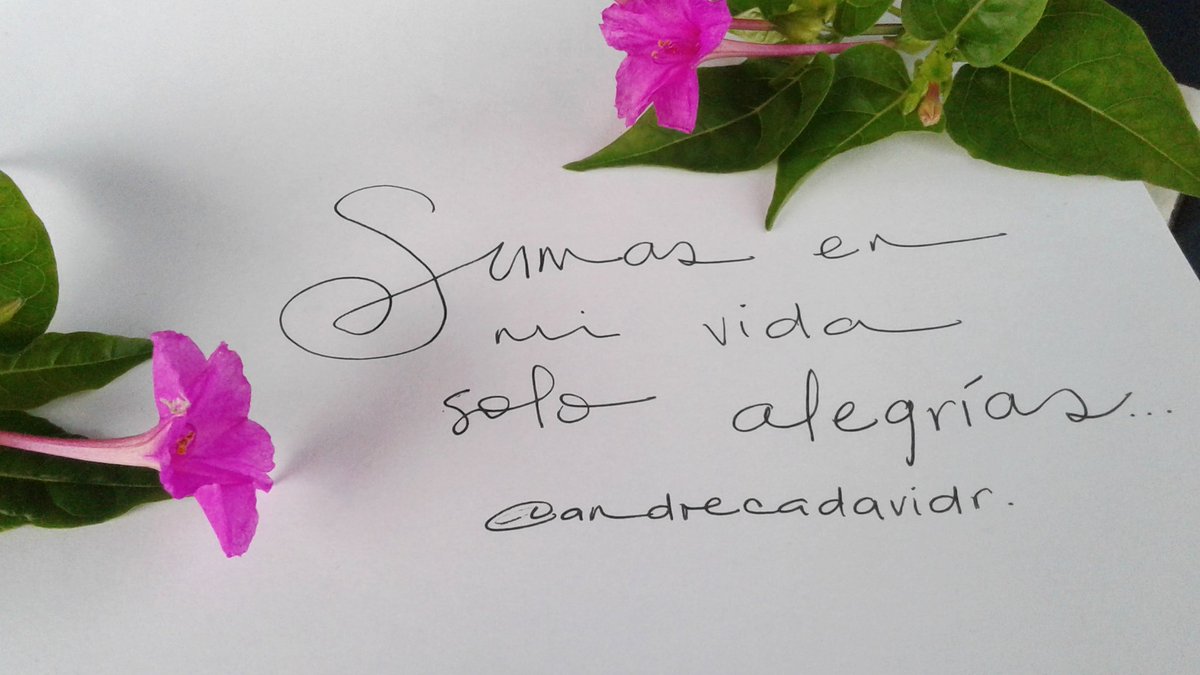 Sumas en
mi vida
solo alegrías...
@andrecadavidr.